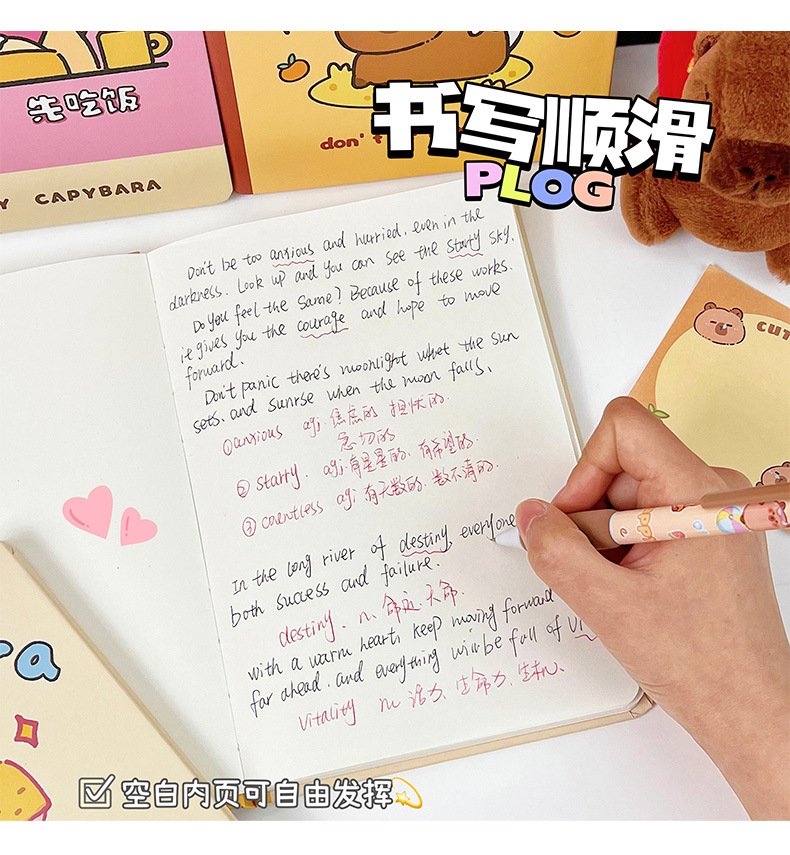 先吃饭
Y CAPYBARA
don't
书写顺滑
PLOG
Don't be too anxious and hurried, even in the
darkness. Look up and you can see the starty sky.
Do you feel the same? Because of these works.
it gives you the courage and hope to move
forward.
Don't panic there's moonlight whet the sun
sets, and sunrse when the moon falls.
①anxious agj.焦虑的 担忧的.
急切的
② starry. agj.有星星的. 有希望的.
③ countless agj 有无数的. 数不清的.
In the long river of destiny, everyone
both success and failure.
destiny. n. 命运.天命.
with a warm heart, keep moving forward
far ahead. and everything will be full of vi
vitality n. 活力、生命力、生机、
CUT
ra
空白内页可自由发挥